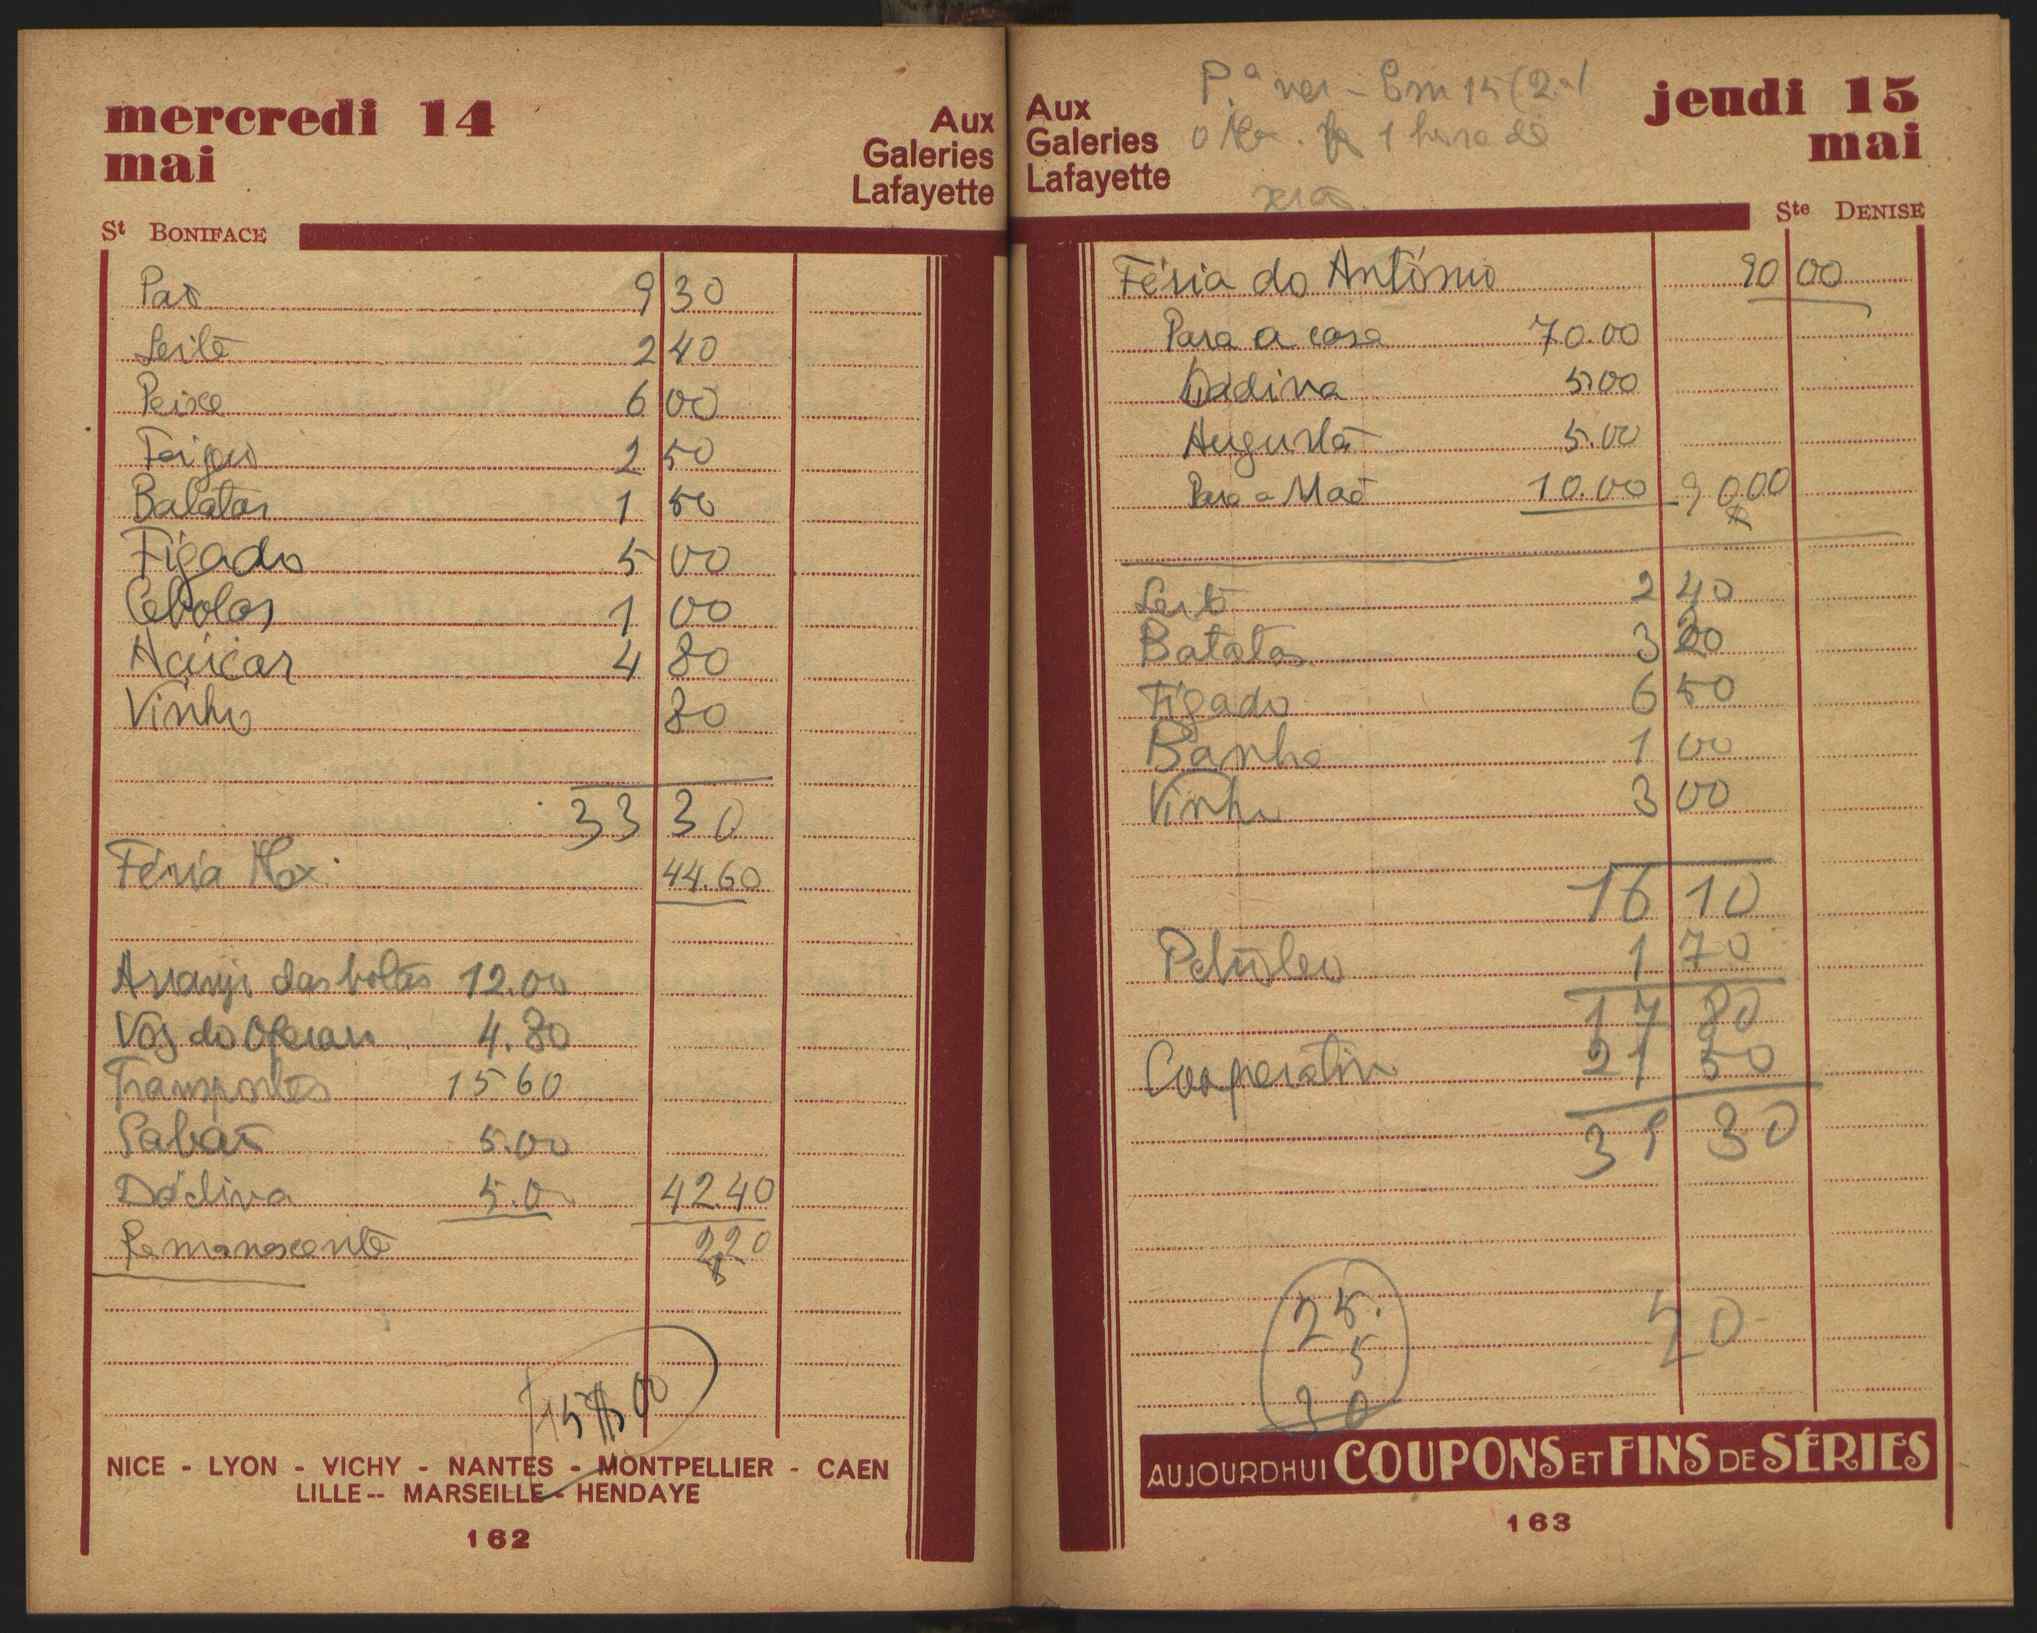 mercredi 14
mai
Aux
Galeries
Lafayette
St BONIFACE
Pão 9 30
Leite 2 40
Peixe 6 00
Feijão 2 50
Batatas 1 50
Fígado 5 00
Cebolas 1 00
Açúcar 4 80
Vinho 80
33 30
Féria 44.60
Arranjo das botas 12.00
Voz do Operário 4.80
Transportes 15 60
Sabão 5.00
Dádiva 5.00 42.40
Remanescente 2$20
15$00
NICE - LYON - VICHY - NANTES - MONTPELLIER - CAEN
LILLE -- MARSEILLE - HENDAYE
162
Aux
Galeries
Lafayette
jeudi 15
mai
1 hora de
Ste DENISE
Féria do António 90 00
Para a casa 70.00
Dádiva 5.00
Augusta 5.00
Para a Mãe 10.00 90$00
Leite 2 40
Batatas 3 20
Fígado 6 50
Banha 1 00
Vinho 3 00
16 10
Petróleo 1 70
17 80
Cooperativa 21 50
39 30
25.
5
30
20
AUJOURDHUI COUPONS ET FINS DE SÉRIES
163